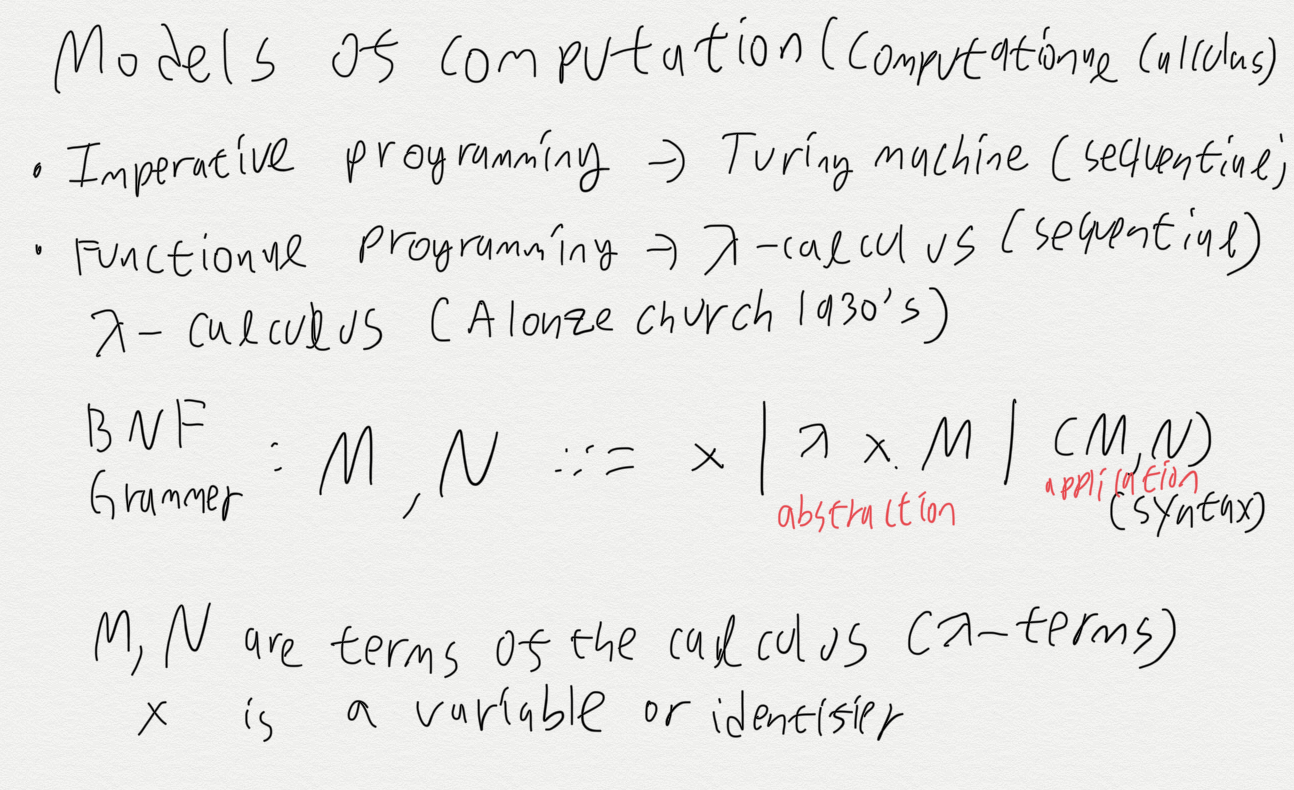 Models of computation (computational calculus)
• Imperative programming → Turing machine (sequential)
• Functional programming → λ-calculus (sequential)
λ-calculus (Alonze church 1930's)
BNF Grammer : M, N ::= x | λx.M | (M,N)
abstraction application
(syntax)
M, N are terms of the calculus (λ-terms)
x is a variable or identifier